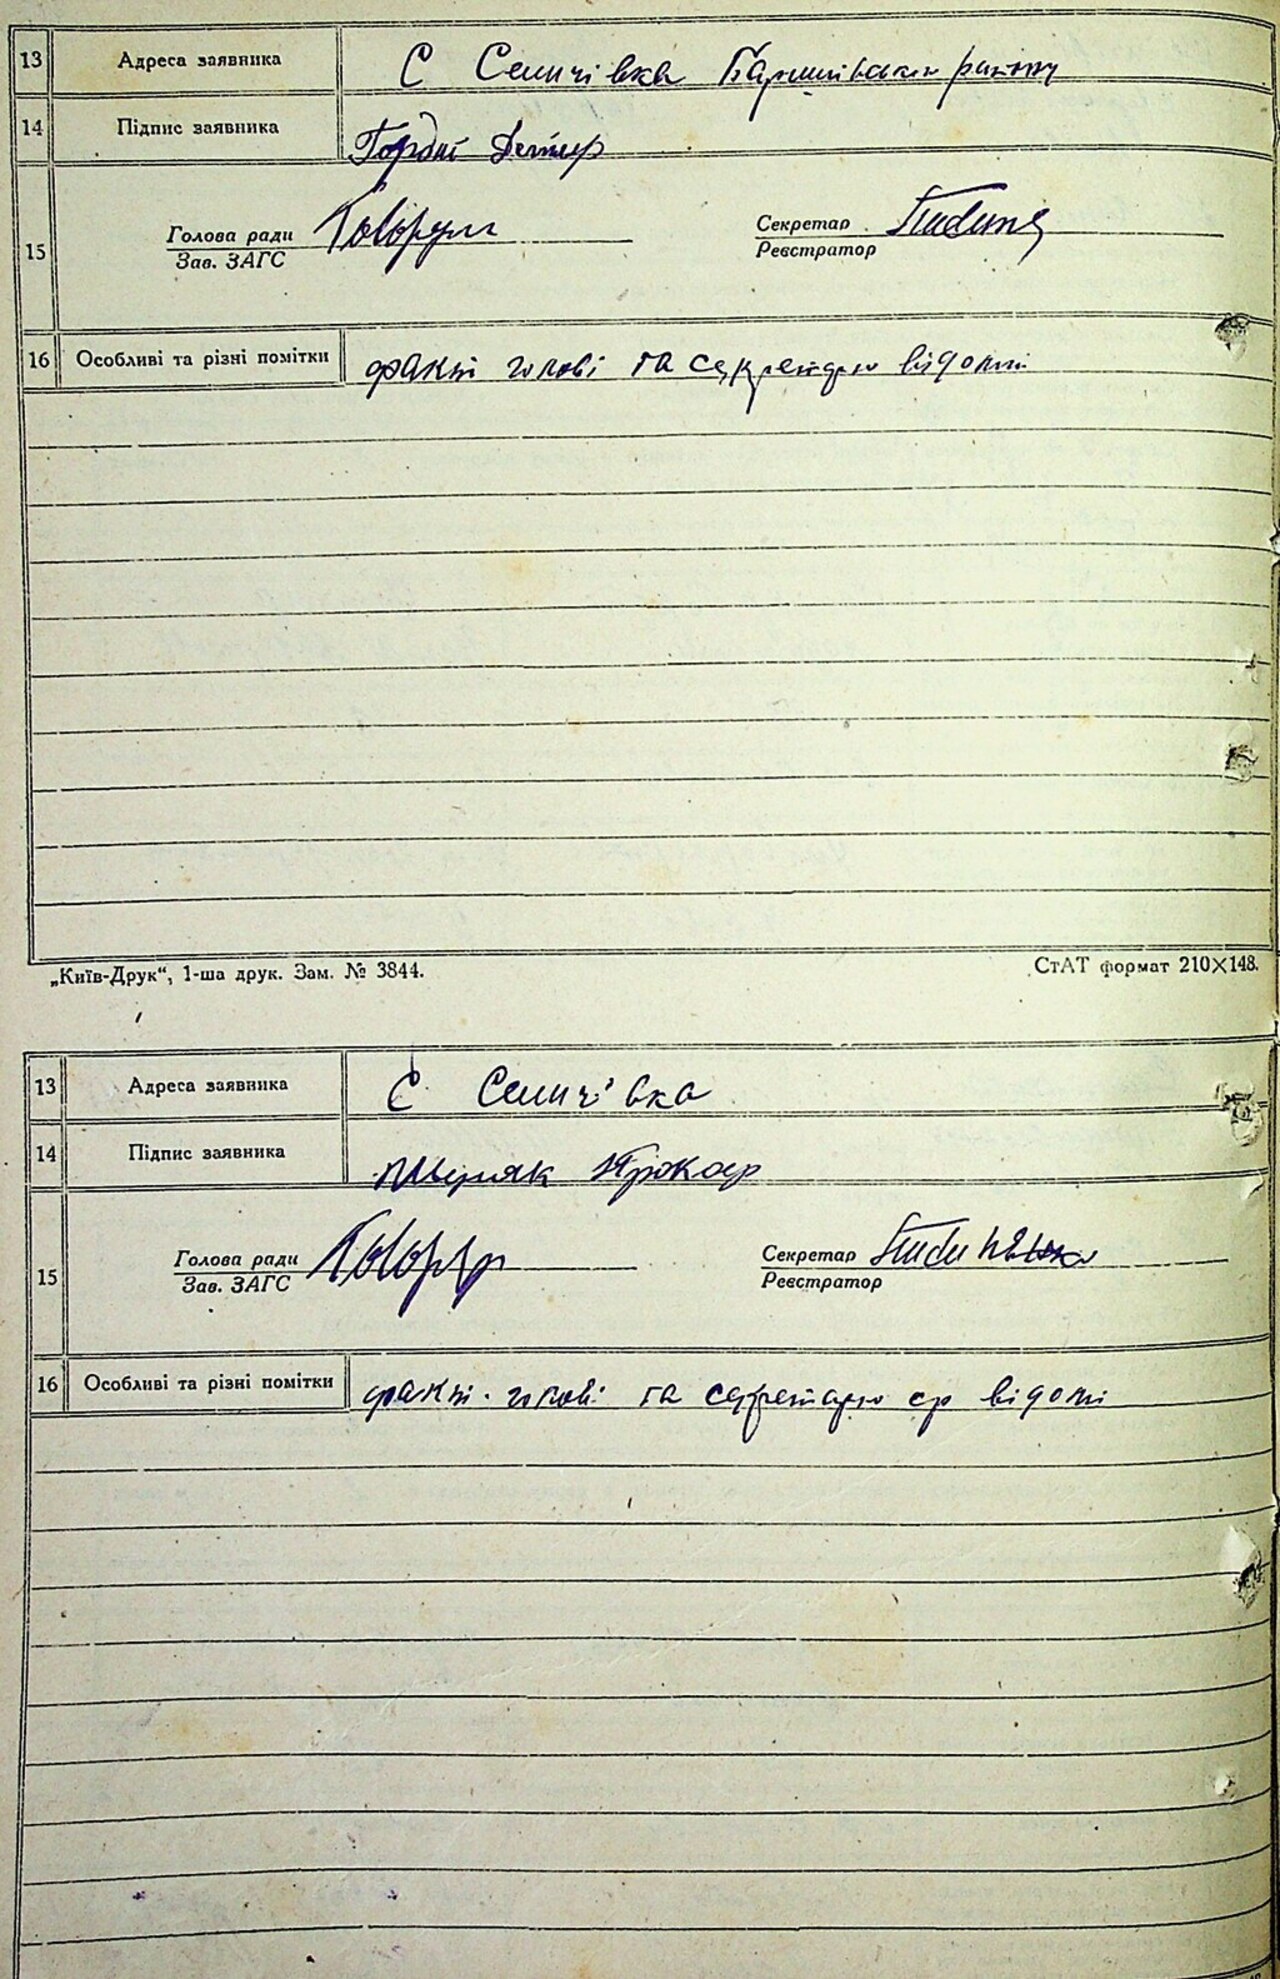 13 Адреса заявника С Селичівка Баришівського району
14 Підпис заявника Гордій
15 Голова ради Секретар
Зав. ЗАГС Реєстратор
16 Особливі та різні помітки факти голові та секретарю відомі
„Київ-Друк“, 1-ша друк. Зам. № 3844. СтАТ формат 210×148.
13 Адреса заявника С Селичівка
14 Підпис заявника Прокоп
15 Голова ради Секретар
Зав. ЗАГС Реєстратор
16 Особливі та різні помітки факти голові та секретарю ср відомі